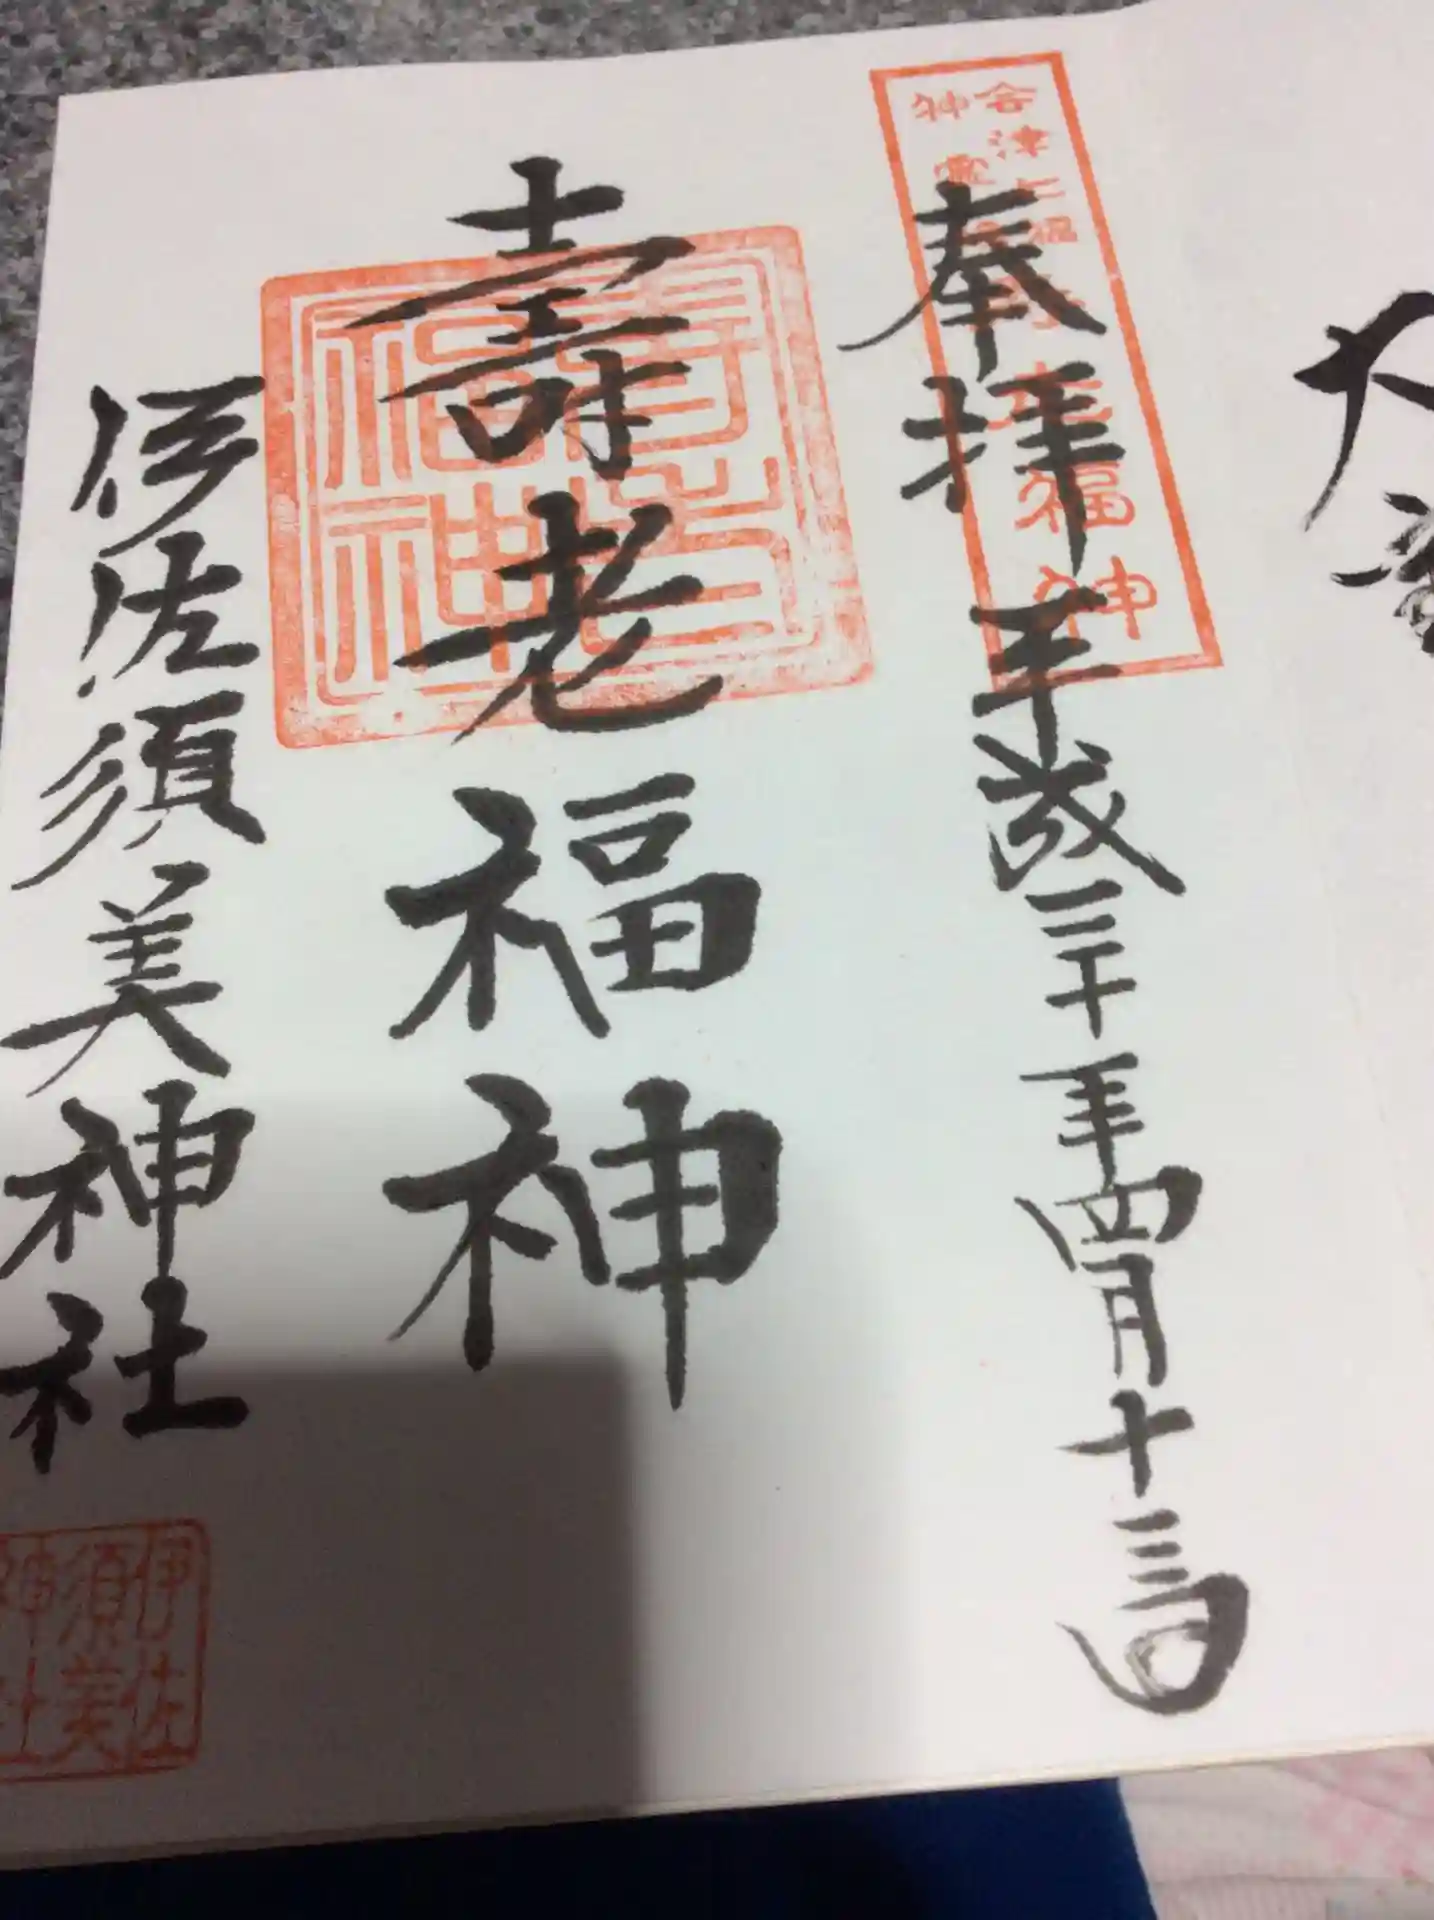 奉拝 平成三十年四月十三日
会津七福神霊
寿老福神
壽老福神
寿老福神
伊佐須美神社
伊佐須美神社